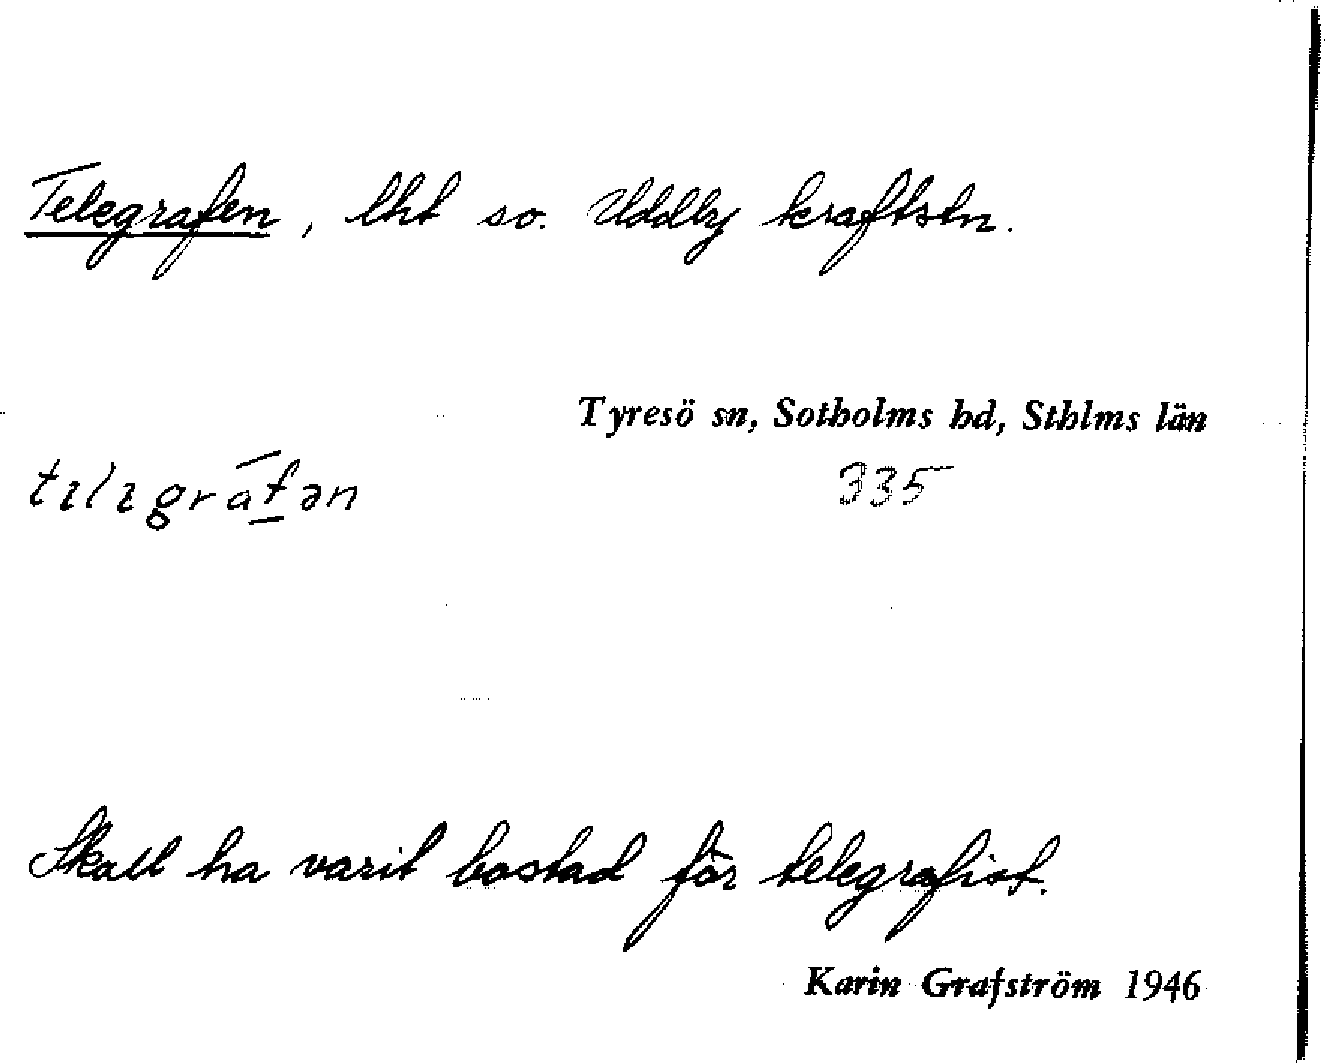 Telegrafen, lht so. Uddby kraftstn.
Tyresö sn, Sotholms hd, Sthlms län
tıligrāf̱ən 335
Skall ha varit bostad för telegrafist.
Karin Grafström 1946